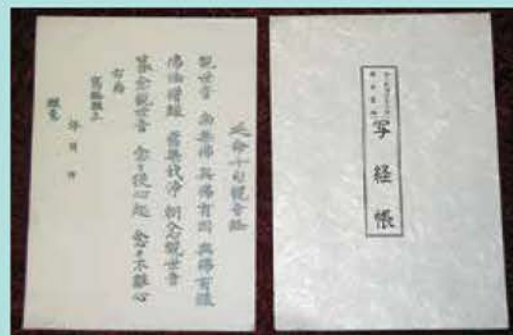 写経帳
延命十句観音経
觀世音 南無佛 與佛有因 與佛有縁
佛法僧縁 常樂我淨 朝念觀世音
暮念觀世音 念々從心起 念々不離心
右為
年 月 日